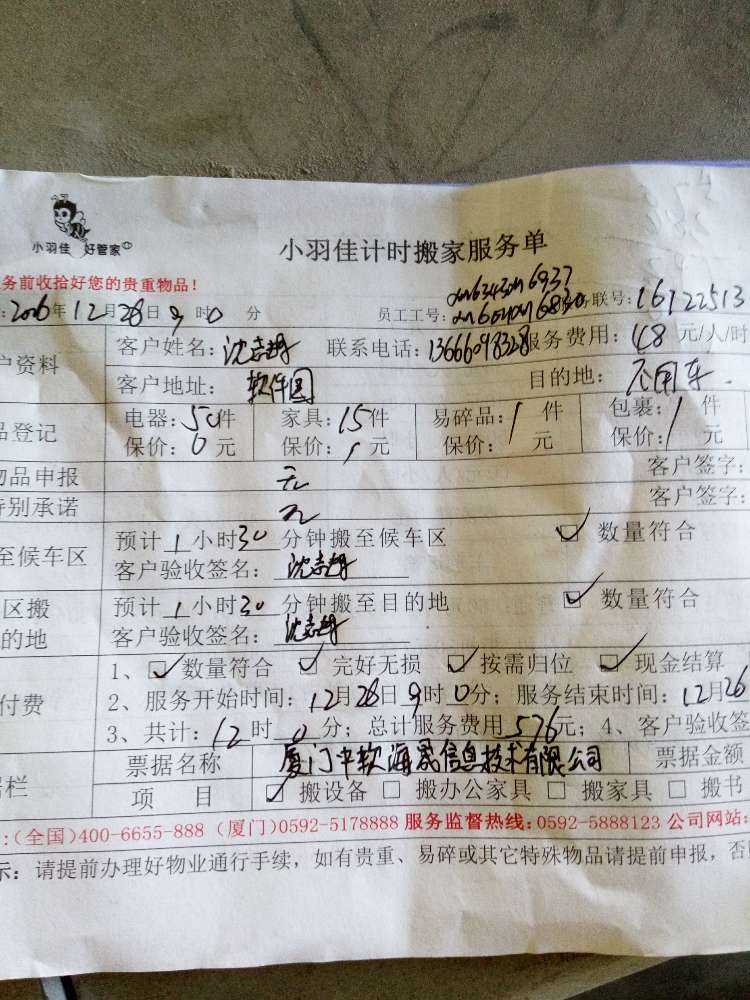 小羽佳 好管家
小羽佳计时搬家服务单
务前收拾好您的贵重物品！
年12月28日9时0分 员工工号： 联号：16122513
户资料 客户姓名： 联系电话：13666098328 服务费用：48元/人/时
客户地址：软件园 目的地：不用车
品登记 电器：50件 家具：15件 易碎品：1件 包裹：1件
保价：0元 保价：1元 保价： 元 保价： 元
物品申报 无 客户签字：
特别承诺 无 客户签字：
至候车区 预计1小时30分钟搬至候车区 数量符合
客户验收签名：
区搬 预计1小时30分钟搬至目的地 数量符合
的地 客户验收签名：
1、数量符合 完好无损 按需归位 现金结算
付费 2、服务开始时间：12月28日9时0分；服务结束时间：12月28
3、共计：12时0分；总计服务费用576元；4、客户验收签
票据名称 厦门中软海晟信息技术有限公司 票据金额
据栏 项目 搬设备 搬办公家具 搬家具 搬书
:(全国)400-6655-888 (厦门)0592-5178888 服务监督热线:0592-5888123 公司网站:
示：请提前办理好物业通行手续，如有贵重、易碎或其它特殊物品请提前申报，否